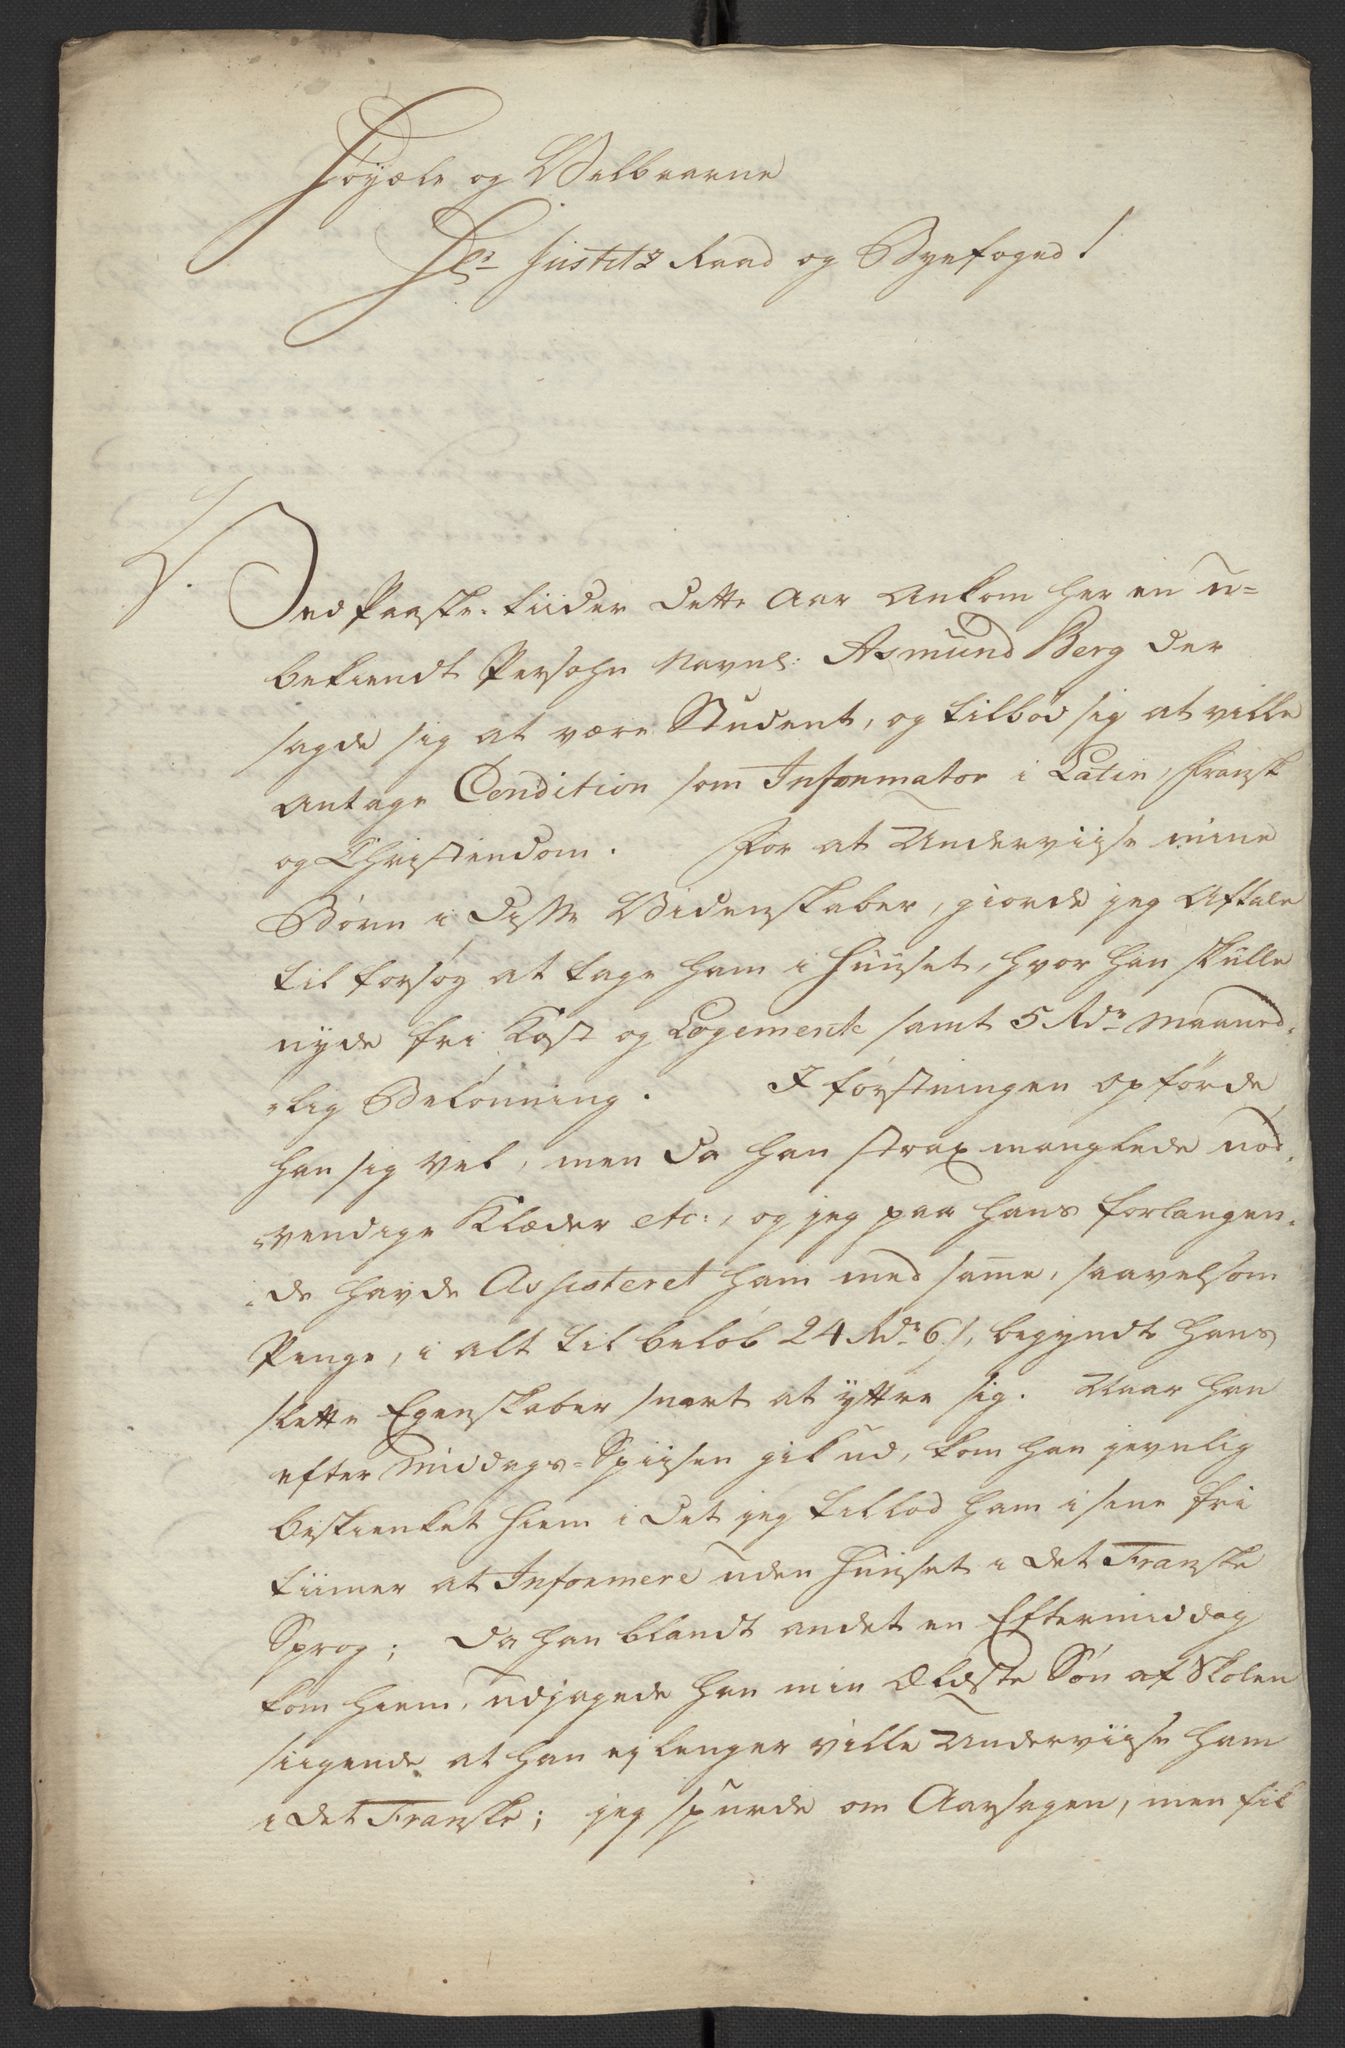 Høyædle og Velbaarne
Hr Justitz Raad og Byefoged!
Ved Paaske-tiider dette Aar Ankom her en u=
bekiendt Persohn Navnl: Asmund Berg der
sagde sig at være Student, og tilbød sig at ville
Antage Condition som Informator i Latin, Fransk
og Christendom. For at Underviise mine
Børn i disse Videnskaber, giorde jeg Aftale
til forsøg at tage ham i Huuset, hvor han skulle
nyde fri Kost og Logemente samt 5 Rdr Maaned-
-lig Belønning. I førstningen opførde
han sig vel, men da han strax manglede nød-
-vendige Klæder etc:, og jeg paa hans forlangen-
-de havde Assisteret ham med same, saavelsom
Penge, i alt til beløb 24 Rdr 6 s, begyndte hans
slette Egenskaber snart at yttre sig. Naar han
efter Middags-Spiisen gik ud, kom han jevnlig
beskienket hiem i det jeg tillod ham i sine fri
tiimer at Informere uden Huuset i det Franske
Sprog; da han blandt andet en Eftermiddag
kom hiem, udjagede han min Ældste Søn af Skolen
siigende at han ej lenger ville Underviise ham
i det Franske; jeg spurde om Aarsagen, men fik